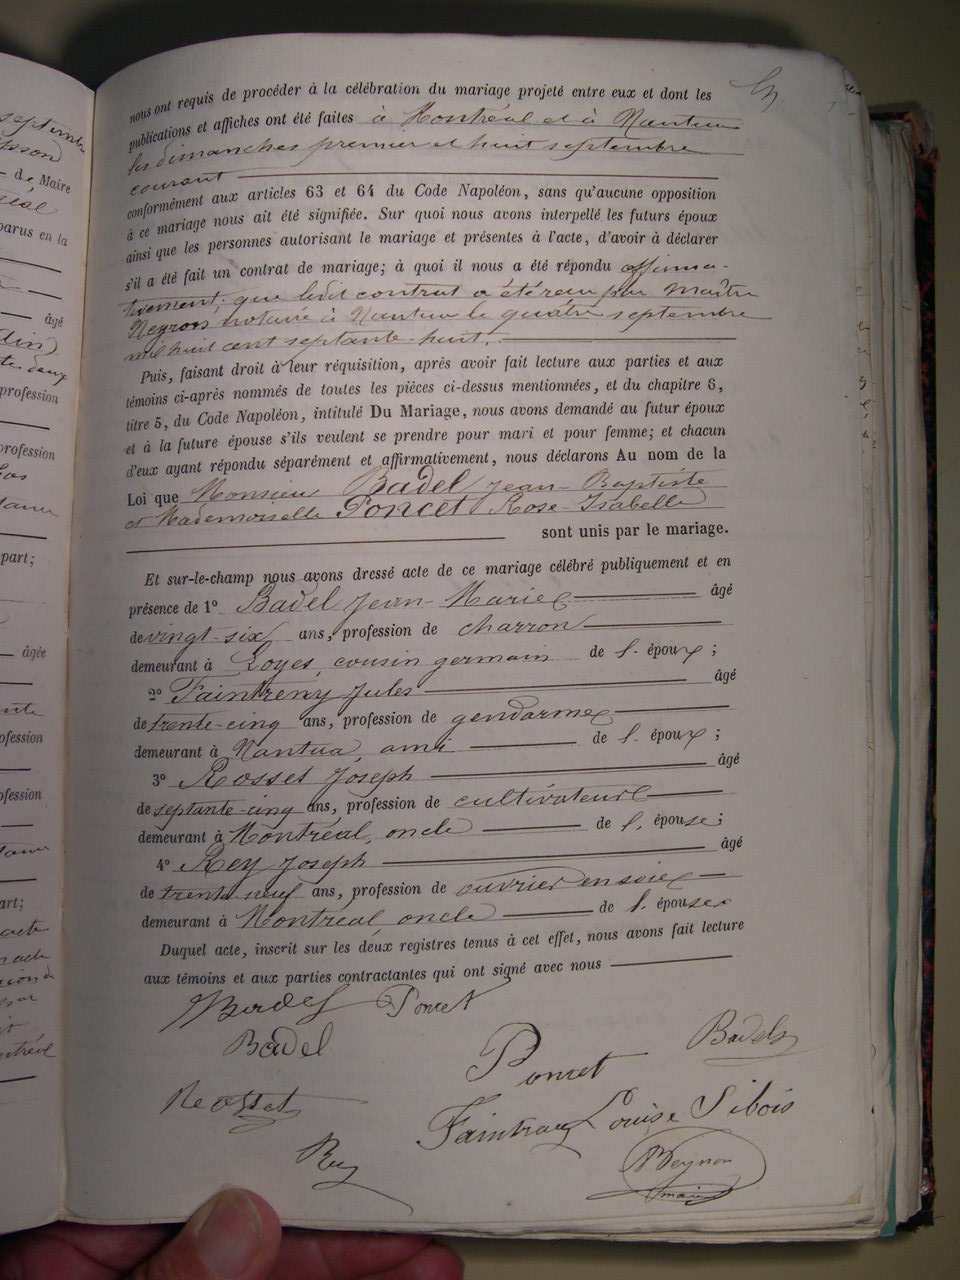 nous ont requis de procéder à la célébration du mariage projeté entre eux et dont les
publications et affiches ont été faites à Montréal et à Nantua
les dimanches premier et huit septembre
courant
conformément aux articles 63 et 64 du Code Napoléon, sans qu'aucune opposition
à ce mariage nous ait été signifiée. Sur quoi nous avons interpellé les futurs époux
ainsi que les personnes autorisant le mariage et présentes à l'acte, d'avoir à déclarer
s'il a été fait un contrat de mariage; à quoi il nous a été répondu affirma-
tivement; que ledit contrat a été reçu par Maître
Neyron notaire à Nantua le quatre septembre
mil huit cent septante-huit.
Puis, faisant droit à leur réquisition, après avoir fait lecture aux parties et aux
témoins ci-après nommés de toutes les pièces ci-dessus mentionnées, et du chapitre 6,
titre 5, du Code Napoléon, intitulé Du Mariage, nous avons demandé au futur époux
et à la future épouse s'ils veulent se prendre pour mari et pour femme; et chacun
d'eux ayant répondu séparément et affirmativement, nous déclarons Au nom de la
Loi que Monsieur Badel Jean-Baptiste
et Mademoiselle Poncet Rose-Isabelle
sont unis par le mariage.
Et sur-le-champ nous avons dressé acte de ce mariage célébré publiquement et en
présence de 1° Badel Jean-Marie âgé
de vingt-six ans, profession de charron
demeurant à Loyes, cousin germain de l'époux;
2° Faintreny Jules âgé
de trente-cinq ans, profession de gendarme
demeurant à Nantua, ami de l'époux;
3° Rosset Joseph âgé
de septante-cinq ans, profession de cultivateur
demeurant à Montréal, oncle de l'épouse;
4° Rey Joseph âgé
de trente-neuf ans, profession de ouvrier en soie
demeurant à Montréal, oncle de l'épouse
Duquel acte, inscrit sur les deux registres tenus à cet effet, nous avons fait lecture
aux témoins et aux parties contractantes qui ont signé avec nous
Badel Poncet
Badel Poncet Badel
Reosset Faintreny Louise Sibois
Rey
maire
de Maire
parus en la
âgé
profession
profession
part;
âgée
ofession
ofession
art;